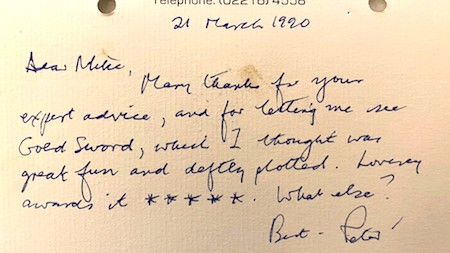 Telephone: (02216) 4558
21 March 1990
Dear Mike,
Many thanks for your
expert advice, and for letting me see
Gold Sword, which I thought was
great fun and deftly plotted. Lovesey
awards it *****. What else?
Best - Peter